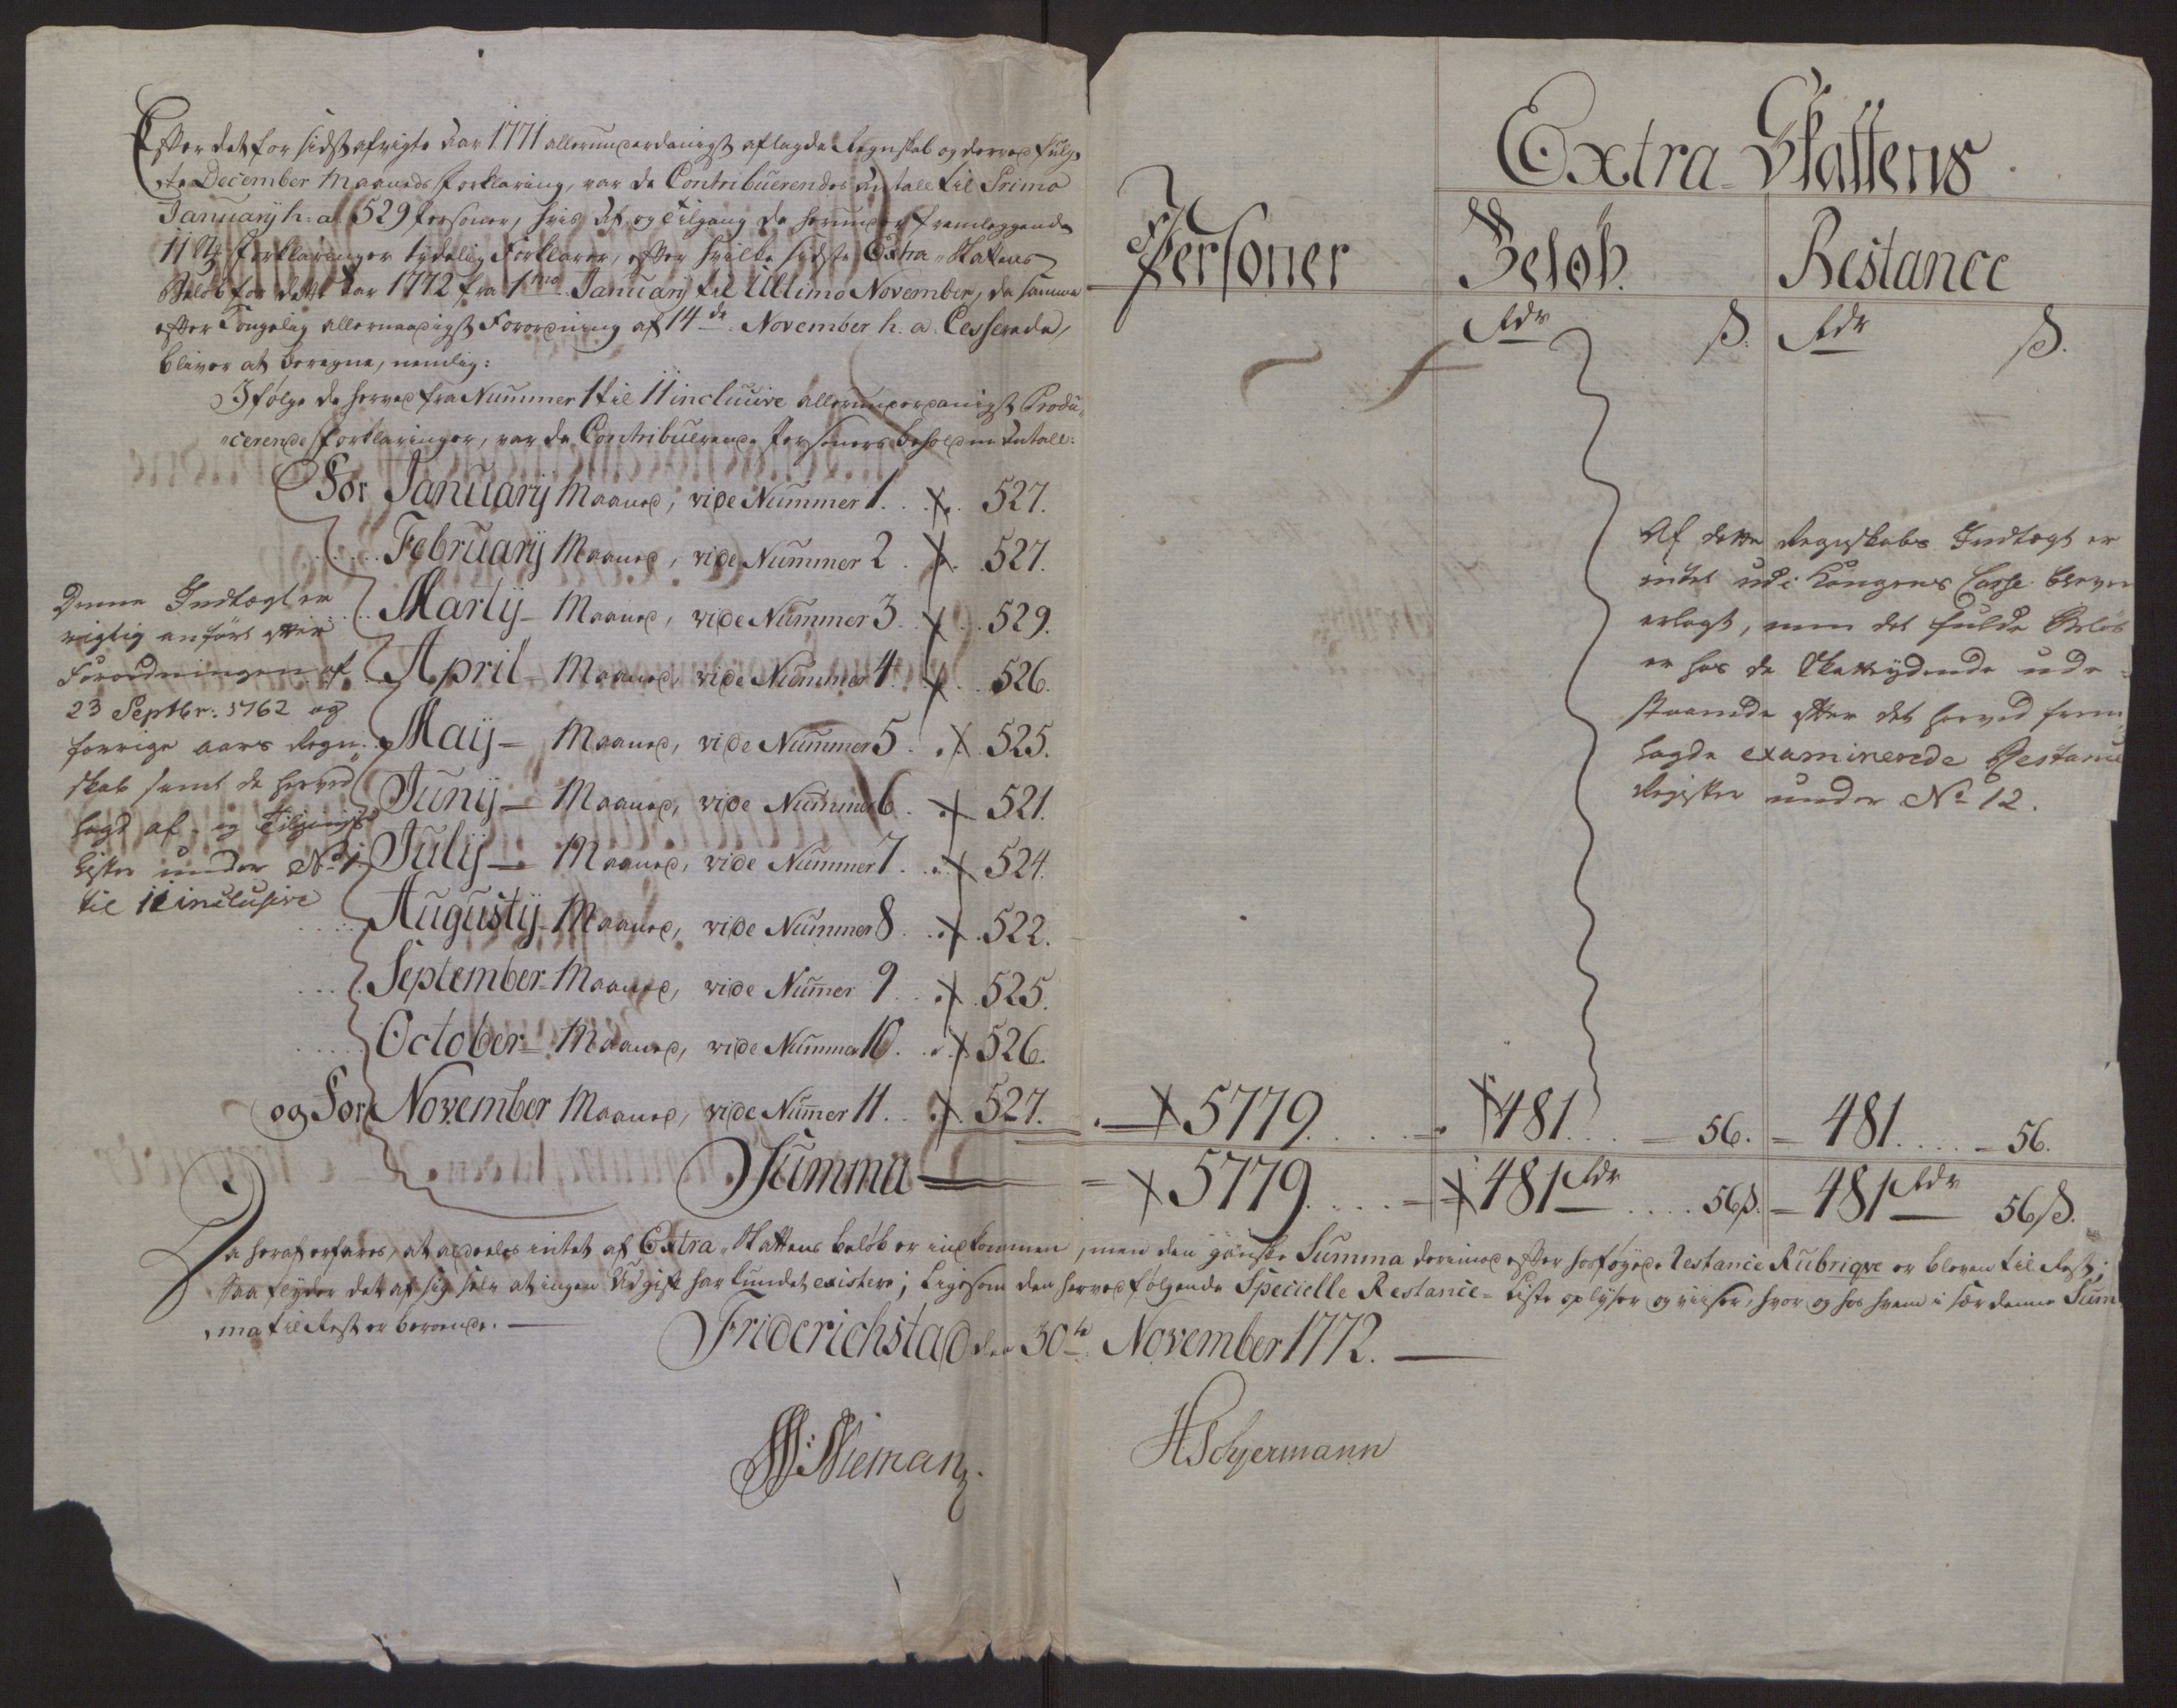 Extra Skattens
Personer
Beløb.
Restance
Rdr ß. Rdr ß.
Efter det for sidst afvigte Aar 1771 allerunderdanigst aflagde Regnskab og derved fulg-
te December Maaneds Forklaring, var de Contribuerendes Antall til Primo
Januarij h: a: 529 Personer, hvis Af og Tilgang de herunder fremleggende
11 Forklaringer tydelig Forklarer, efter hvilke sidste Extra-Skattens
Beløb for dette Aar 1772 fra 1mo Januarij til Ultimo November, da samme
efter Kongelig allernaadigst Forordning af 14de November h. a. Cesserede,
bliver at beregne, nemlig:
Ifølge de herved fra Nummer 1 til 11 inclusive allerunderdanigst Produ-
cerende Forklaringer, var de Contribuerende Personers beholdne Antall:
For Januarij Maaned, vide Nummer 1. 527.
Februarij Maaned, vide Nummer 2. 527.
Martij Maaned, vide Nummer 3. 529.
April Maaned, vide Nummer 4. 526.
Maij Maaned, vide Nummer 5. 525.
Junij Maaned, vide Nummer 6. 521.
Julij Maaned, vide Nummer 7. 524.
Augustij Maaned, vide Nummer 8. 522.
September Maaned, vide Num̄er 9. 525.
October Maaned, vide Nummer 10. 526.
og For November Maaned, vide Num̄er 11. 527. 5779. 481. 56. 481. 56.
Summa 5779. 481 Rdr 56 ß. 481 Rdr 56 ß.
Denne Indtægt er
rigtig anført efter
Forordningen af
23 Septbr: 1762 og
forrige aars Regn-
skab samt de herved
lagd af- og Tilgangs
Lister under No 1
til 11 inclusive
Af dette Regnskabs Indtægt er
intet udi Kongens Casse bleven
erlagt, men det fulde Beløb
er hos de Skatteydende ude-
staaende efter det herved frem-
lagde examinerede Restance
Register under No 12.
Da heraf erfares, at aldeeles intet af Extra-Skattens beløb er indkommen, men den gandske Summa derimod efter hosføyede Restance Rubriqve er bleven til Rest;
Saa flyder det af sig selv at ingen Udgift har kundet existere; Ligesom den herved følgende Specielle Restance-Liste oplyser og viiser, hvor og hos hvem i sær denne Sum-
ma til Rest er beroende.
Friderichstad den 30te November 1772.
Nieman
HSchyermann